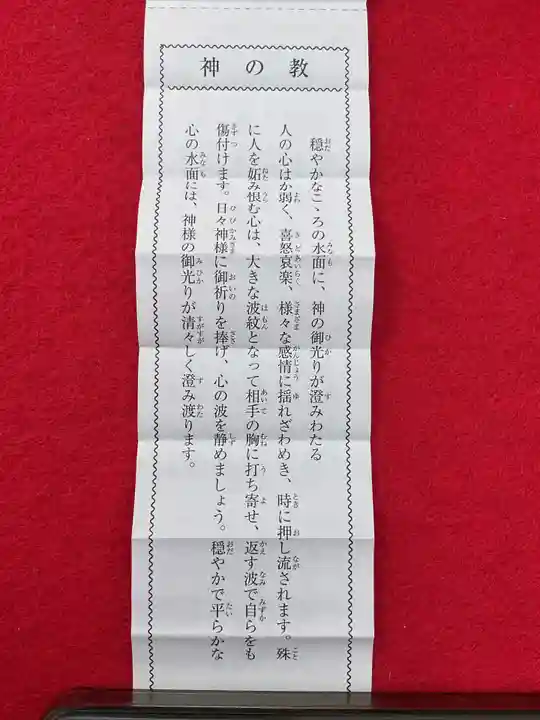 神の教
穏やかなこゝろの水面に、神の御光りが澄みわたる
人の心はか弱く、喜怒哀楽、様々な感情に揺れざわめき、時に押し流されます。殊
に人を妬み恨む心は、大きな波紋となって相手の胸に打ち寄せ、返す波で自らをも
傷付けます。日々神様に御祈りを捧げ、心の波を静めましょう。穏やかで平らかな
心の水面には、神様の御光りが清々しく澄み渡ります。